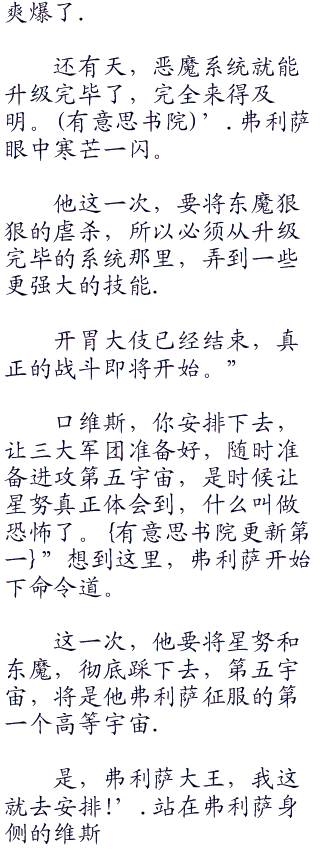 爽爆了.
还有天，恶魔系统就能
升级完毕了，完全来得及
明。(有意思书院)’.弗利萨
眼中寒芒一闪。
他这一次，要将东魔狠
狠的虐杀，所以必须从升级
完毕的系统那里，弄到一些
更强大的技能.
开胃大伎已经结束，真
正的战斗即将开始。”
口维斯，你安排下去，
让三大军团准备好，随时准
备进攻第五宇宙，是时候让
星努真正体会到，什么叫做
恐怖了。{有意思书院更新第
一}”想到这里，弗利萨开始
下命令道。
这一次，他要将星努和
东魔，彻底踩下去，第五宇
宙，将是他弗利萨征服的第
一个高等宇宙.
是，弗利萨大王，我这
就去安排!’.站在弗利萨身
侧的维斯